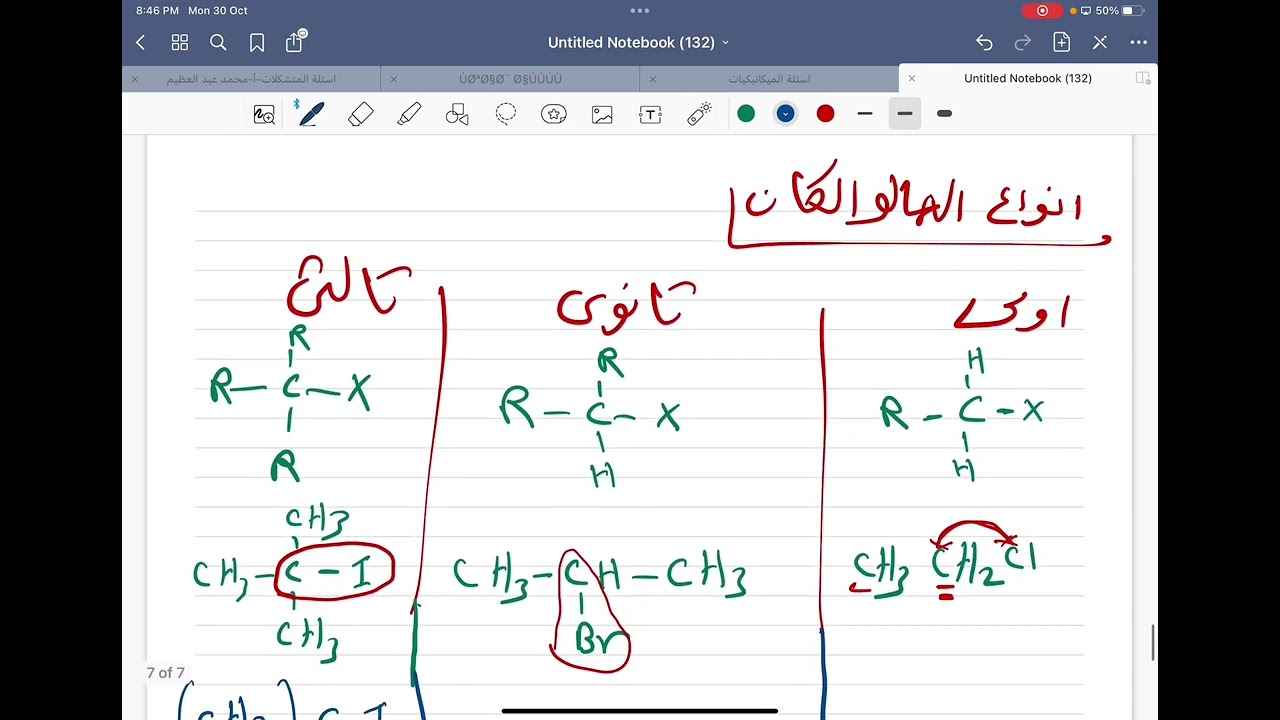 8:46 PM Mon 30 Oct
50%
Untitled Notebook (132)
اسئلة المتشكلات-أ-محمد عبد العظيم
اسئلة الميكانيكيات
Untitled Notebook (132)
انواع الهالو الكان
اولي
ثانوي
ثالثي
H
R - C - X
H
R
R - C - X
H
R
R - C - X
R
CH3 CH2 Cl
CH3 - CH - CH3
Br
CH3
CH3 - C - I
CH3
7 of 7